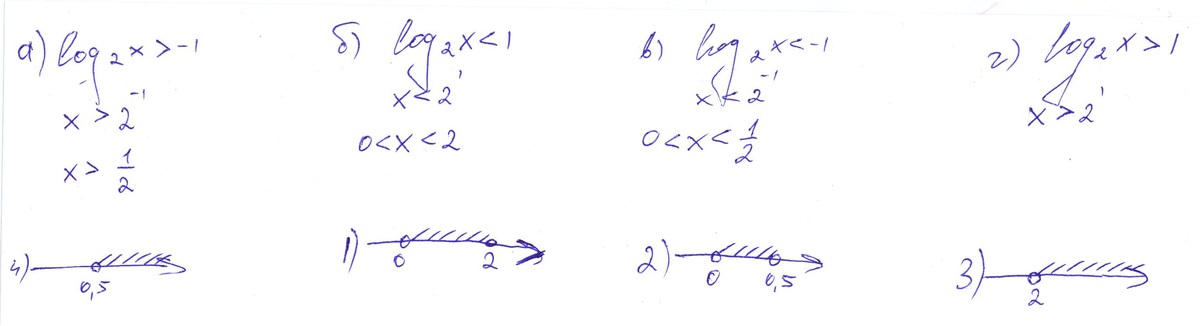 а) log₂x > -1
x > 2⁻¹
x > 1/2
4)
0,5
б) log₂x < 1
x < 2¹
0 < x < 2
1)
0 2
в) log₂x < -1
x < 2⁻¹
0 < x < 1/2
2)
0 0,5
г) log₂x > 1
x > 2¹
3)
2